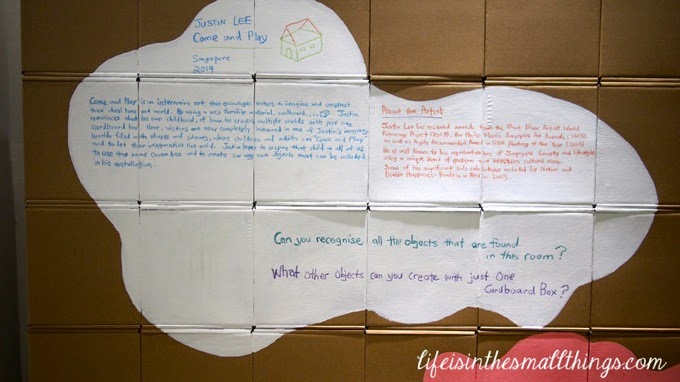 JUSTIN LEE
Come and Play
Singapore
2014
Come and Play is an interactive art that encourages visitors to imagine and construct
their ideal home and world. By using a very familiar material, cardboard, Justin
reminisces about his own childhood, of how he creates multiple worlds with just one
cardboard box. Here, visitors are now completely immersed in one of Justin's imaginary
worlds filled with shapes and colours, where children and adults can "Come and Play"
and to let their imagination run wild. Justin hopes to inspire that child in all of us
to use that same carton box and to create our very own objects that can be included
in his installation.
About the Artist
Justin Lee has received awards from the
as well as Highly Recommended Award in UOB Painting of the Year
He is well known for his representations of Singapore Society and lifestyle,
using a unique blend of eastern and western cultural icons.
Some of his significant solo exhibitions include
Double Happiness - in 2003.
Can you recognise all the objects that are found
in this room?
What other objects can you create with just One
Cardboard Box?
lifeisinthesmallthings.com